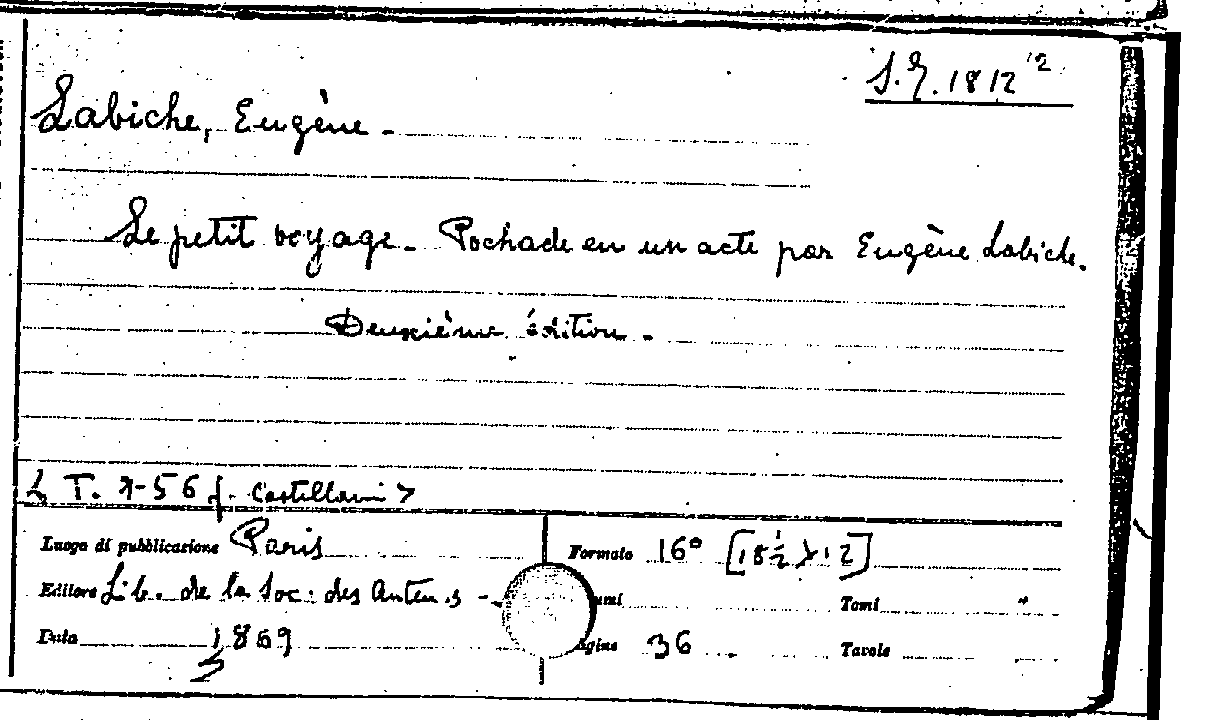 S.G. 1812 12
Labiche, Eugène -
Le petit voyage - Pochade en un acte par Eugène Labiche.
Deuxième édition -
T. 7-56 f. Castellani >
Luogo di pubblicazione Paris
Formato 16° [18½ x 12]
Editore Lib. de la Soc. des Auteurs -
umi
Tomi "
Data 1869
agine 36
Tavole